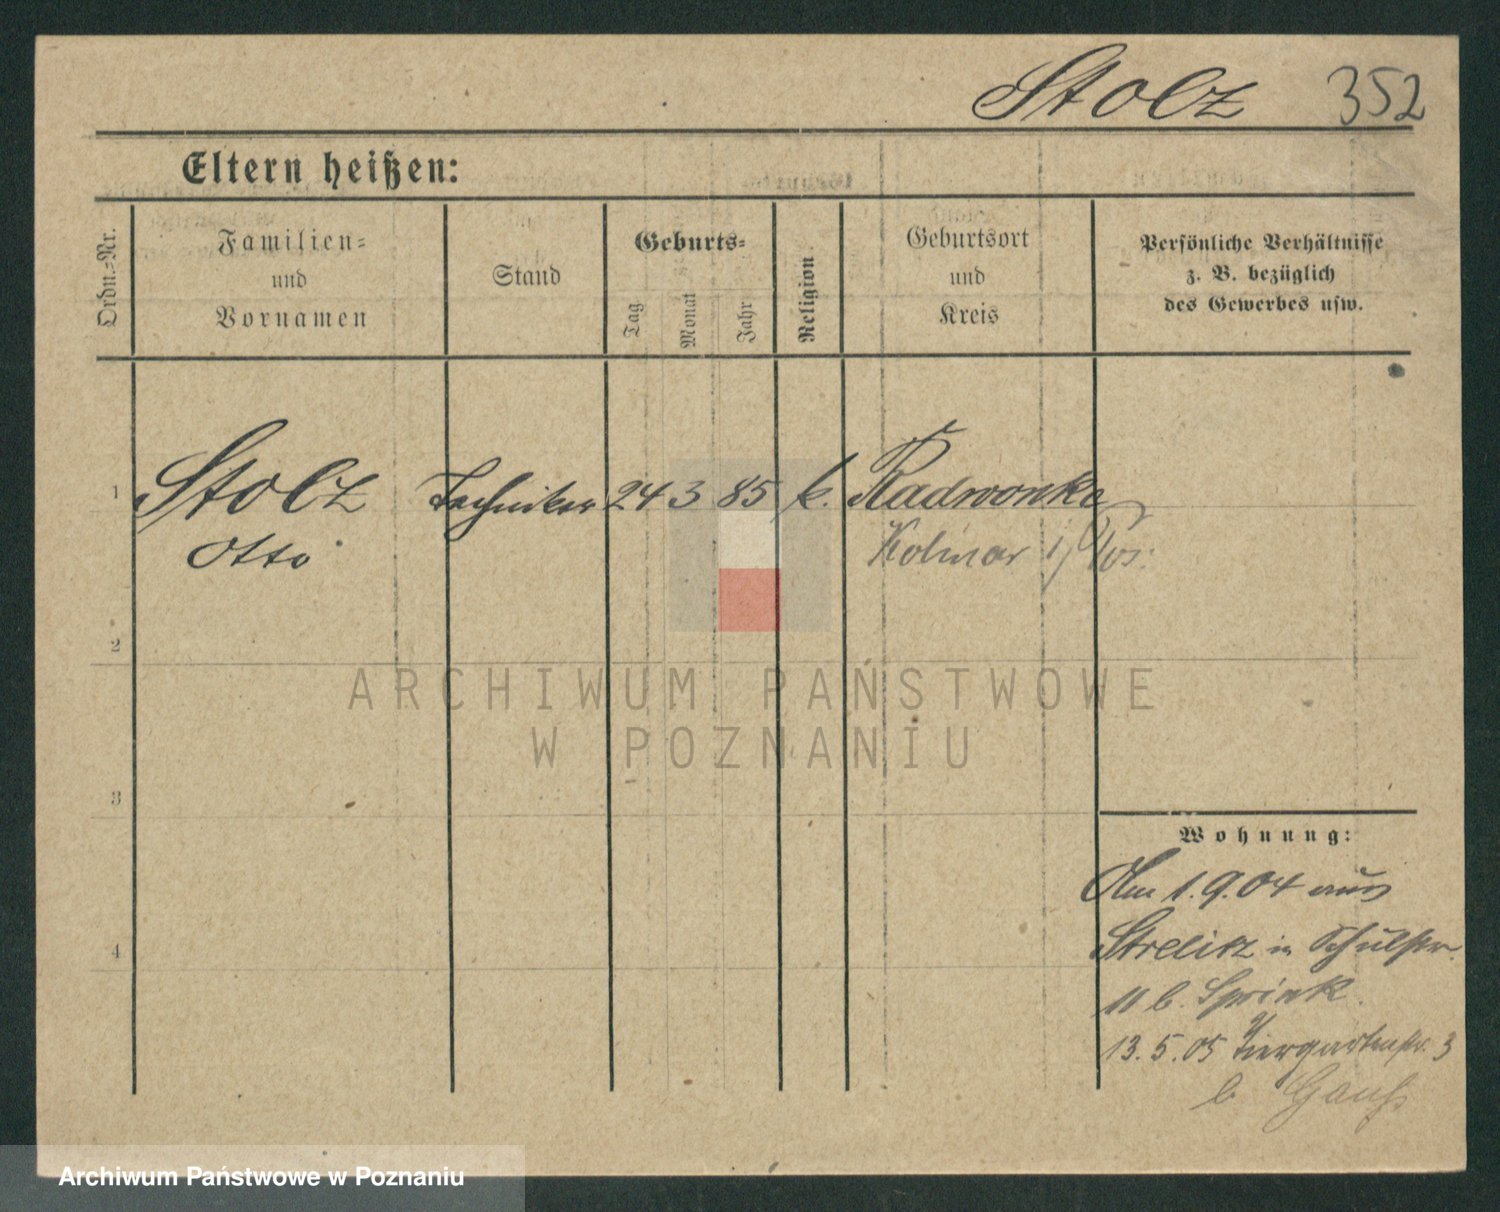 Stolz 352
Eltern heißen:
Ordn.-Nr.
Familien-
und
Vornamen
Stand
Geburts-
Tag
Monat
Jahr
Religion
Geburtsort
und
Kreis
Persönliche Verhältnisse
z. B. bezüglich
des Gewerbes usw.
1 Stolz Techniker 24 3 85 k. Radwonke
Otto Kolmar i/ Pos.
2
ARCHIWUM PAŃSTWOWE
W POZNANIU
3
Wohnung:
Am 1.9.04 aus
4
Strelitz in Schulstr.
11 b. Sprink.
13.5.05 Tiergartenstr. 3
b Gauß
Archiwum Państwowe w Poznaniu